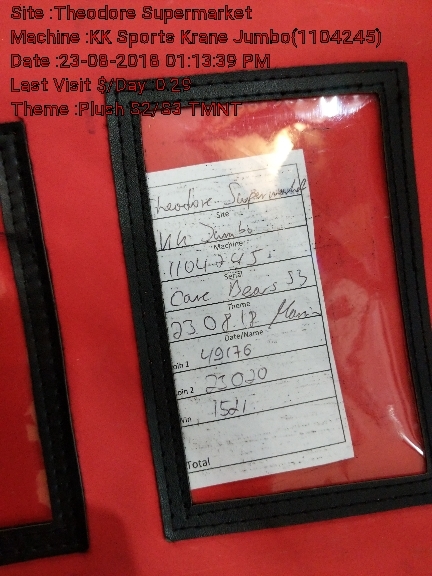 Site :Theodore Supermarket
Machine :KK Sports Krane Jumbo(1104245)
Date :23-08-2018 01:13:39 PM
Last Visit $/Day :0.29
Theme :Plush S2/S3 TMNT
Theodore Supermarket
Site
KK Jumbo
Machine
1104245
Serial
Care Bears S3
Theme
23.08.18
Date/Name
oin 1 49176
oin 2 23030
Win 1521
Total